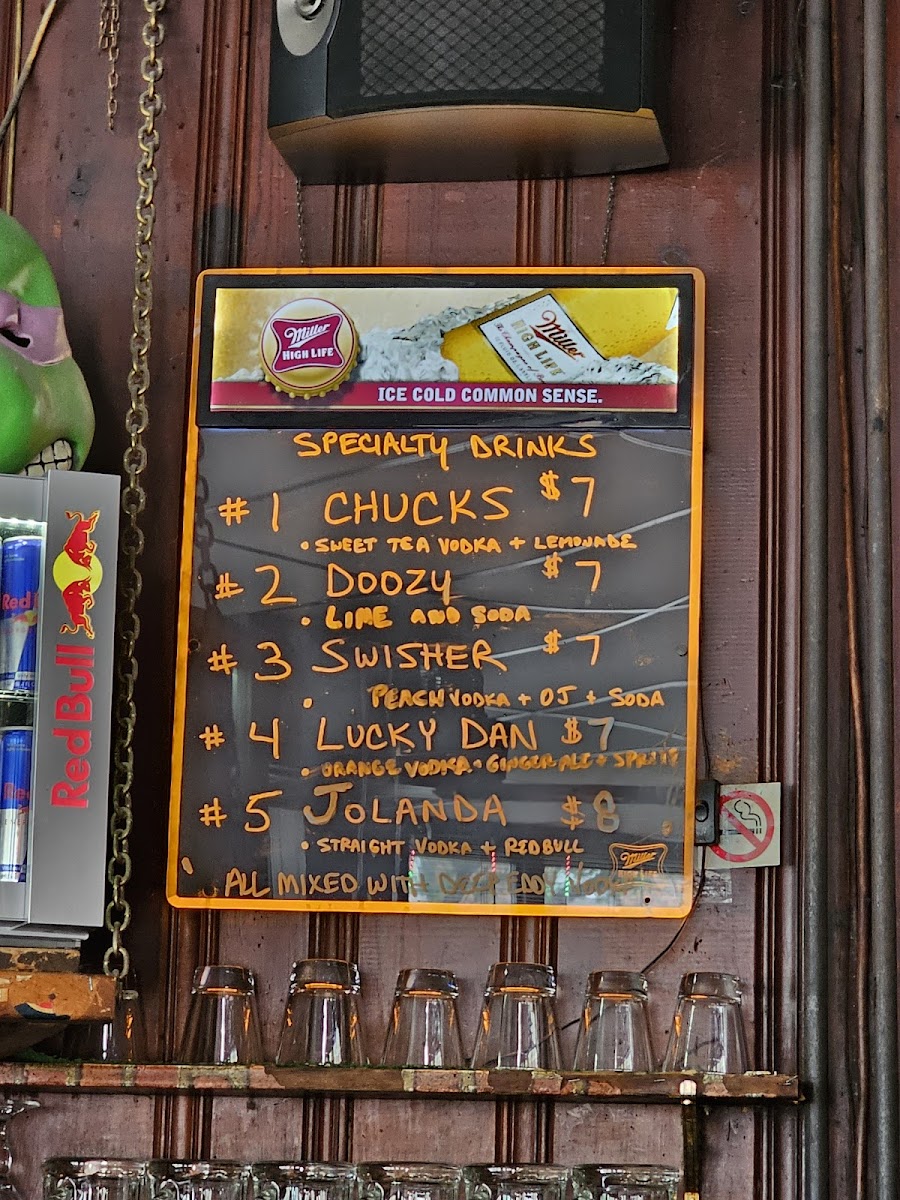 Miller
HIGH LIFE
Miller
HIGH LIFE
ICE COLD COMMON SENSE.
SPECIALTY DRINKS
# 1 CHUCKS $7
• SWEET TEA VODKA + LEMONADE
# 2 DOOZY $7
• LIME AND SODA
# 3 SWISHER $7
• PEACH VODKA + OJ + SODA
# 4 LUCKY DAN $7
• ORANGE VODKA + GINGER ALE + SPRITE
# 5 JOLANDA $8
• STRAIGHT VODKA + REDBULL
Miller
ALL MIXED WITH DEEP EDDY VODKA
Red Bull
Red